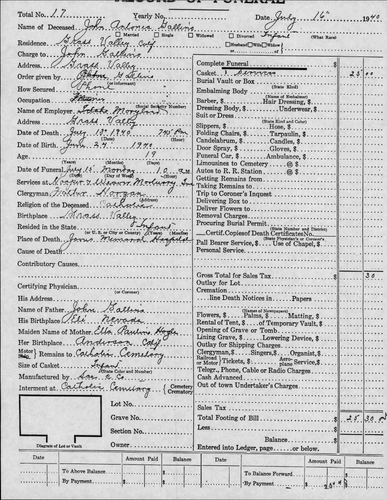 RECORD OF FUNERAL
Total No. 17 Yearly No. Date July 16 1940
Name of Deceased John Antonio
Married Single Widowed Divorced Infant (What Race)
Residence Grass Valley Husband Wife Widow of
Charge to John
Address Grass Valley
Order given by
How Secured Phone
Occupation
Name of Employer
Address Grass Valley
Date of Death July 1940
Date of Birth June 27 1940
Age 19
(Years) (Months) (Days)
Date of Funeral July 15 Monday 10
Services at Mortuary
Clergyman Father
Religion of the Deceased Catholic
Birthplace Grass Valley
Resided in the State Infant
Place of Death Jones Memorial Hospital
Cause of Death
Contributory Causes
Certifying Physician
His Address
Name of Father John
His Birthplace Nevada
Maiden Name of Mother Ella Pauline
Her Birthplace Anderson
Motor Ship Remains to Catholic Cemetery
Size of Casket Infant
(State Color and Number)
Manufactured by
Interment at Catholic Cemetery
Cemetery Crematory
Lot No.
Grave No.
Section No.
Diagram of Lot or Vault
Owner
Complete Funeral
Casket & services 25 00
Burial Vault or Box
(State Kind)
Embalming Body
Barber, $ Hair Dressing, $
Dressing Body, $ Underwear, $
Suit or Dress
(State Kind and Color)
Slippers, $ Hose, $
Folding Chairs, $ Tarpaulin, $
Candelabrum, $ Candles, $
Door Spray, $ Gloves, $
Funeral Car, $ Ambulance, $
Limousines to Cemetery @ $
Autos to R. R. Station @ $
Getting Remains from
Taking Remains to
Trip to Coroner's Inquest
Delivering Box to
Deliver Flowers to
Removal Charges
Procuring Burial Permit
(State Number and District)
Certif. Copies of Death Certificates No.
(State Physician's or Coroner's)
Pall Bearer Service, $ Use of Chapel, $
Personal Service
Gross Total for Sales Tax 30
Outlay for Lot
Cremation
line Death Notices in Papers
(Names of Newspapers)
Flowers, $ Palms, $ Matting, $
Rental of Tent, $ of Temporary Vault, $
Opening of Grave or Tomb
Lining Grave, $ Lowering Device, $
Outlay for Shipping Charges
Clergyman, $ Singers, $ Organist, $
Railroad and Motor Tickets, $ Aeroplane Service, $
Telegr., Phone, Cable or Radio Charges
Cash Advanced
Out of town Undertaker's Charges
Sales Tax
Total Footing of Bill 25 30
Less
Balance
Entered into Ledger, page or below.
Date Amount Paid Balance Date Amount Paid Balance
To Above Balance To Balance Forward
By Payment By Payment